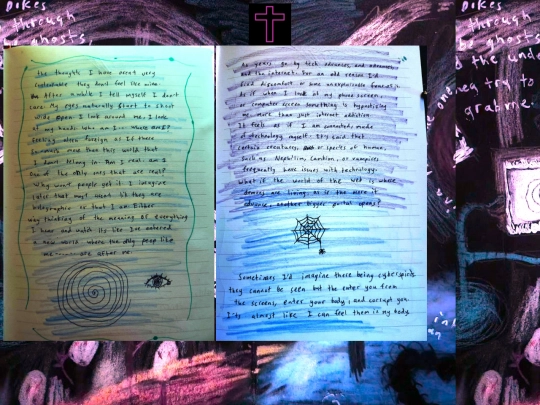 Pikes
through
be ghosts,
the thoughts I have arent very
reasonable they dont feel like mine
After a while I tell myself I don't
care. My eyes naturally start to shoot
wide open I look around me. I look
at my hands. Who am I.. where am I?
Feeling alien foreign as if there
more than this world that
I dont belong in. Am I real. am I
One of the only ones that are real?
Why wont people get it I imagine
is that I am Either
way thinking of the meaning of everything
I know and watch its like Ive entered
a new world where the only people like
me are after me.
As years go by tech advances, and advances
and the internet. For an odd reason I'd
feel discomfort or some unexplainable
as if when I look at my phone screen,
or computer screen something is hypnotising
me more than just internet addiction.
It feels as if I am
of technology myself. It's said that
certain creatures, or species of human,
Such as Nephilim, Cambion, or vampires
frequently have issues with technology.
What if the world of the web is where
demons are living, as the more it
advance, another bigger portal opens?
Sometimes I'd imagine there being cyberspirits
they cannot be seen but the enter you from
the screens, enter your body, and corrupt you.
Its almost like I can feel them in my body.
Pikes
through
be ghosts,
the unde
neq try to